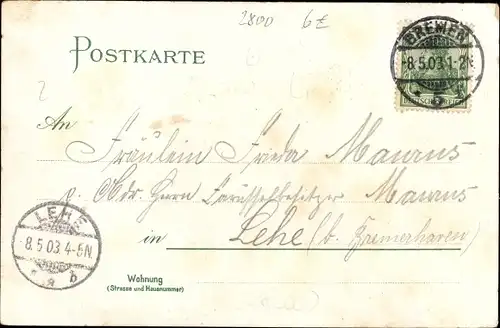 2800 6€
POSTKARTE
BREMEN
8.5.03.1-2N.
DEUTSCHES REICH
An
Fräulein Frieda Maurus
Maurus
in Lehe (b. Bremerhaven)
LEHE
8.5.03 4-5N.
Wohnung
(Strasse und Hausnummer)